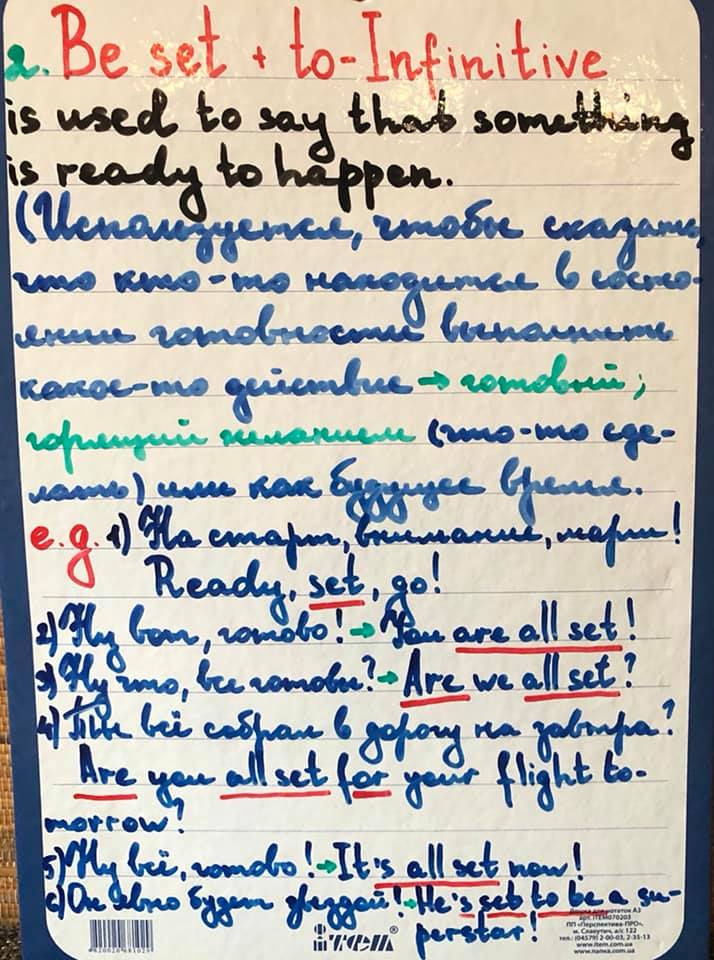 2. Be set + to-Infinitive
is used to say that something
is ready to happen.
(Используется, чтобы сказать,
что кто-то находится в состо-
янии готовности выполнить
какое-то действие → готовый;
горящий желанием (что-то сде-
лать) или как будущее время.
e.g. 1) На старт, внимание, марш!
Ready, set, go!
2) Ну вот, готово! → You are all set!
3) Ну что, все готовы? → Are we all set?
4) Ты всё собрал в дорогу на завтра?
Are you all set for your flight to-
morrow?
5) Ну всё, готово! → It's all set now!
6) Он явно будет звездой! → He's set to be a su-
perstar!
Дошка для нотаток А3
арт. ITEM070203
ПП «Перспектива-ПРО»,
м. Славутич, а/с 122
тел.: (04579) 2-00-03, 2-35-13
www.item.com.ua
www.nanka.com.ua
item®
4820026681029